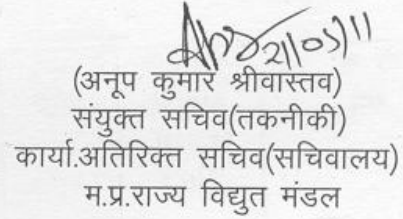 21/05/11
(अनूप कुमार श्रीवास्तव)
संयुक्त सचिव(तकनीकी)
कार्या.अतिरिक्त सचिव(सचिवालय)
म.प्र.राज्य विद्युत मंडल